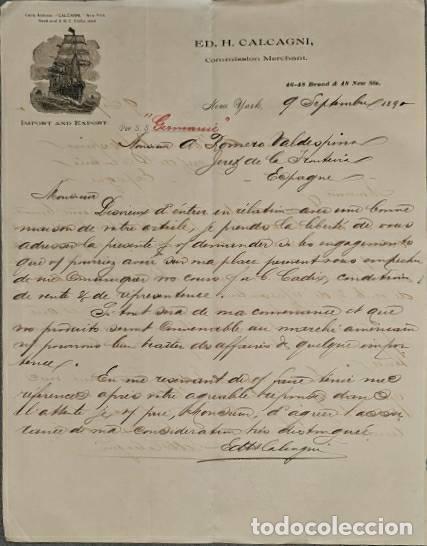 Cable Address: "CALCAGNI," New York
ED. H. CALCAGNI,
Commission Merchant.
46-48 Broad & 48 New Sts.
IMPORT AND EXPORT
New York, 9 Septembre 1890
Per S. S. "Germanic"
Monsieur A. Romero Valdespino
Jerez de la Frontera
Espagne
Monsieur
Désireux d'entrer en rélation avec une bonne
maison de votre article, je prends la liberté de vous
adresser la présente & vous demander si les engagements
que vous pourriez avoir sur ma place peuvent vous empêcher
de me communiquer vos cours f. a b. Cadiz, conditions
de vente & de représentance.
Si tout sera de ma convenance et que
vos produits seront convenable au marché américain
nous pourrons bien traiter des affaires de quelque impor
tance.
En me reservant de vous faire tenir mes
références après votre agréable réponse, dans
l'attente je vous prie, Monsieur, d'agréer l'assu
rance de ma considération très distinguée
Ed H Calcagni
todocoleccion.net